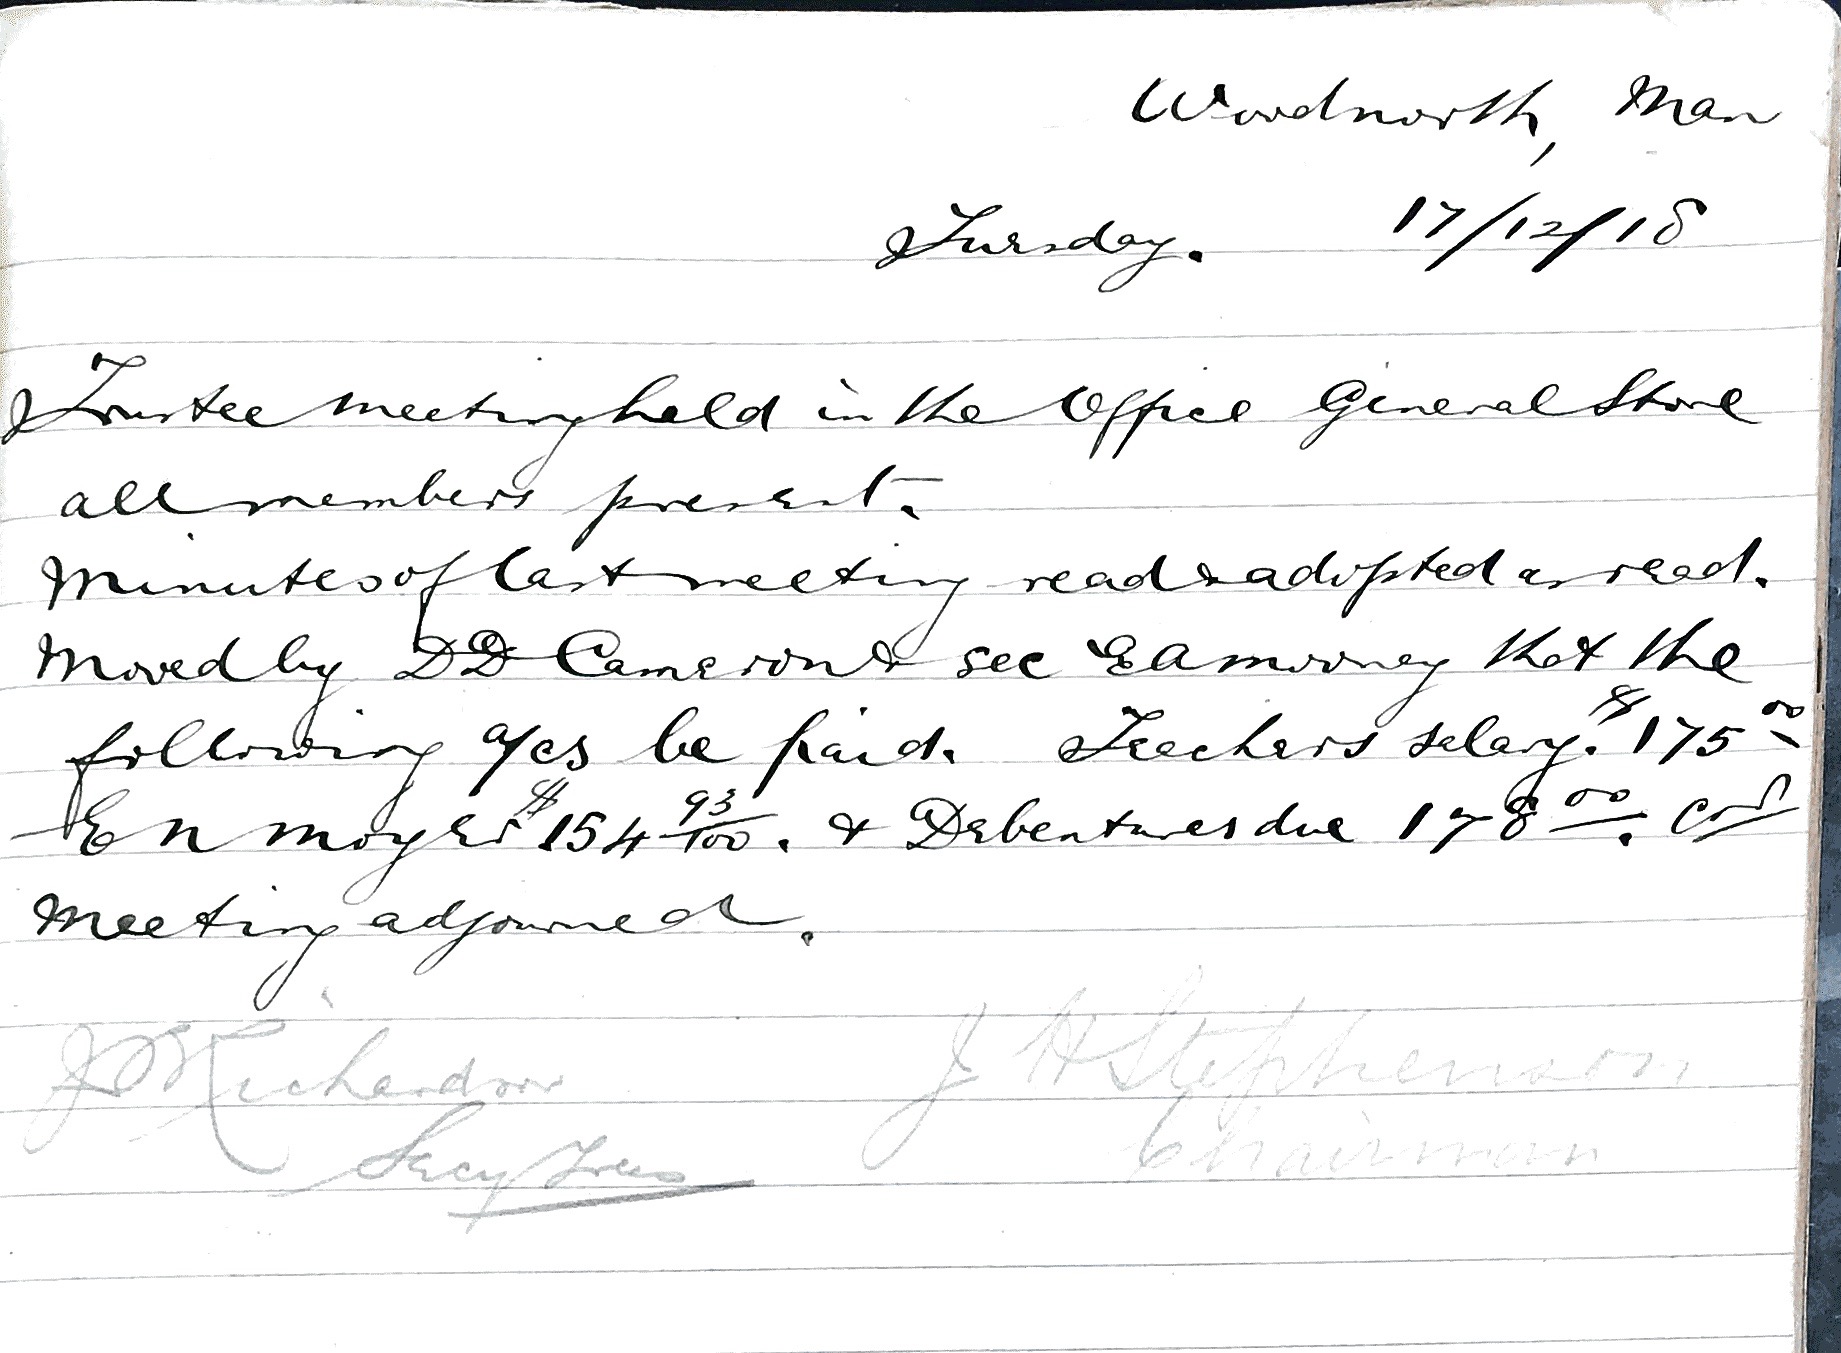 Woodnorth, Man
Tuesday. 17/12/18
Trustee meeting held in the Office General Store
all members present.
Minutes of last meeting read & adopted as read.
Moved by D D Cameron & sec E A Mooney that the
following a/cs be paid. Teachers salary. $175 00
E N Moyer $154 93/100. & Debentures due 178 00. Crd
Meeting adjourned.
Richardson J H Stephenson
Secy Treas Chairman